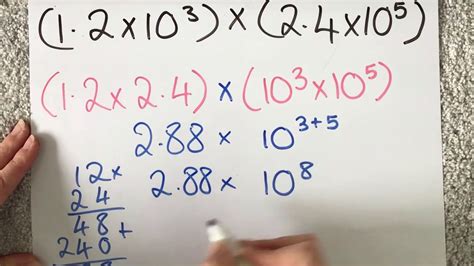 (1.2×10³)×(2.4×10⁵)
(1.2×2.4)×(10³×10⁵)
2.88 × 10³⁺⁵
2.88 × 10⁸
12×
24
48+
240